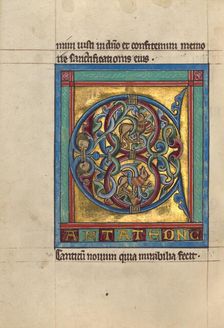 mini iusti in dño et confitemini memo
rie sanctificationis eius.
C
ANTATE DNO C
Canticū novum quia mirabilia fecit.